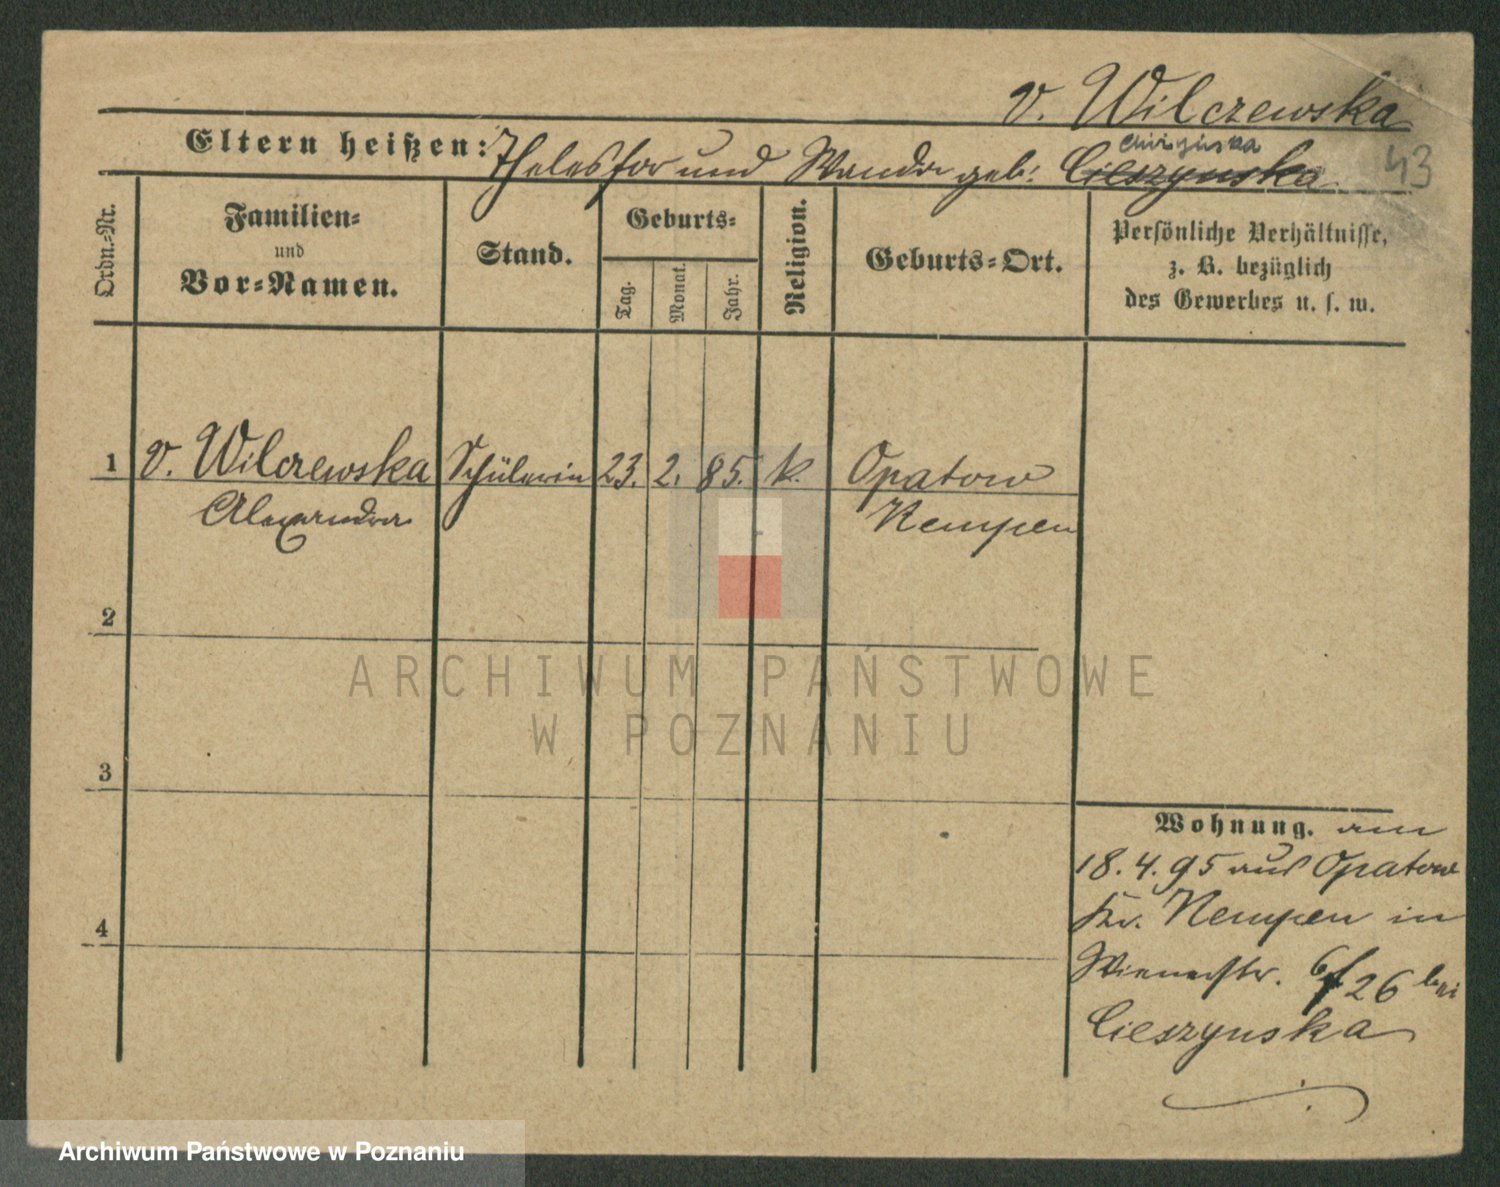 v. Wilczewska
Eltern heißen: Thelesfor und Wanda geb: Cieszynska
43
Ordn.-Nr.
Familien-
und
Vor-Namen.
Stand.
Geburts-
Tag.
Monat.
Jahr.
Religion.
Geburts-Ort.
Persönliche Verhältnisse,
z. B. bezüglich
des Gewerbes u. s. w.
1 v. Wilczewska Schülerin 23. 2. 85. k. Opatow
Alexandra Kempen
2
3
4
Wohnung. am
18.4.95 aus Opatow
Kr. Kempen in
Wienerstr. 6/26 bei
Cieszynska
ARCHIWUM PAŃSTWOWE
W POZNANIU
Archiwum Państwowe w Poznaniu